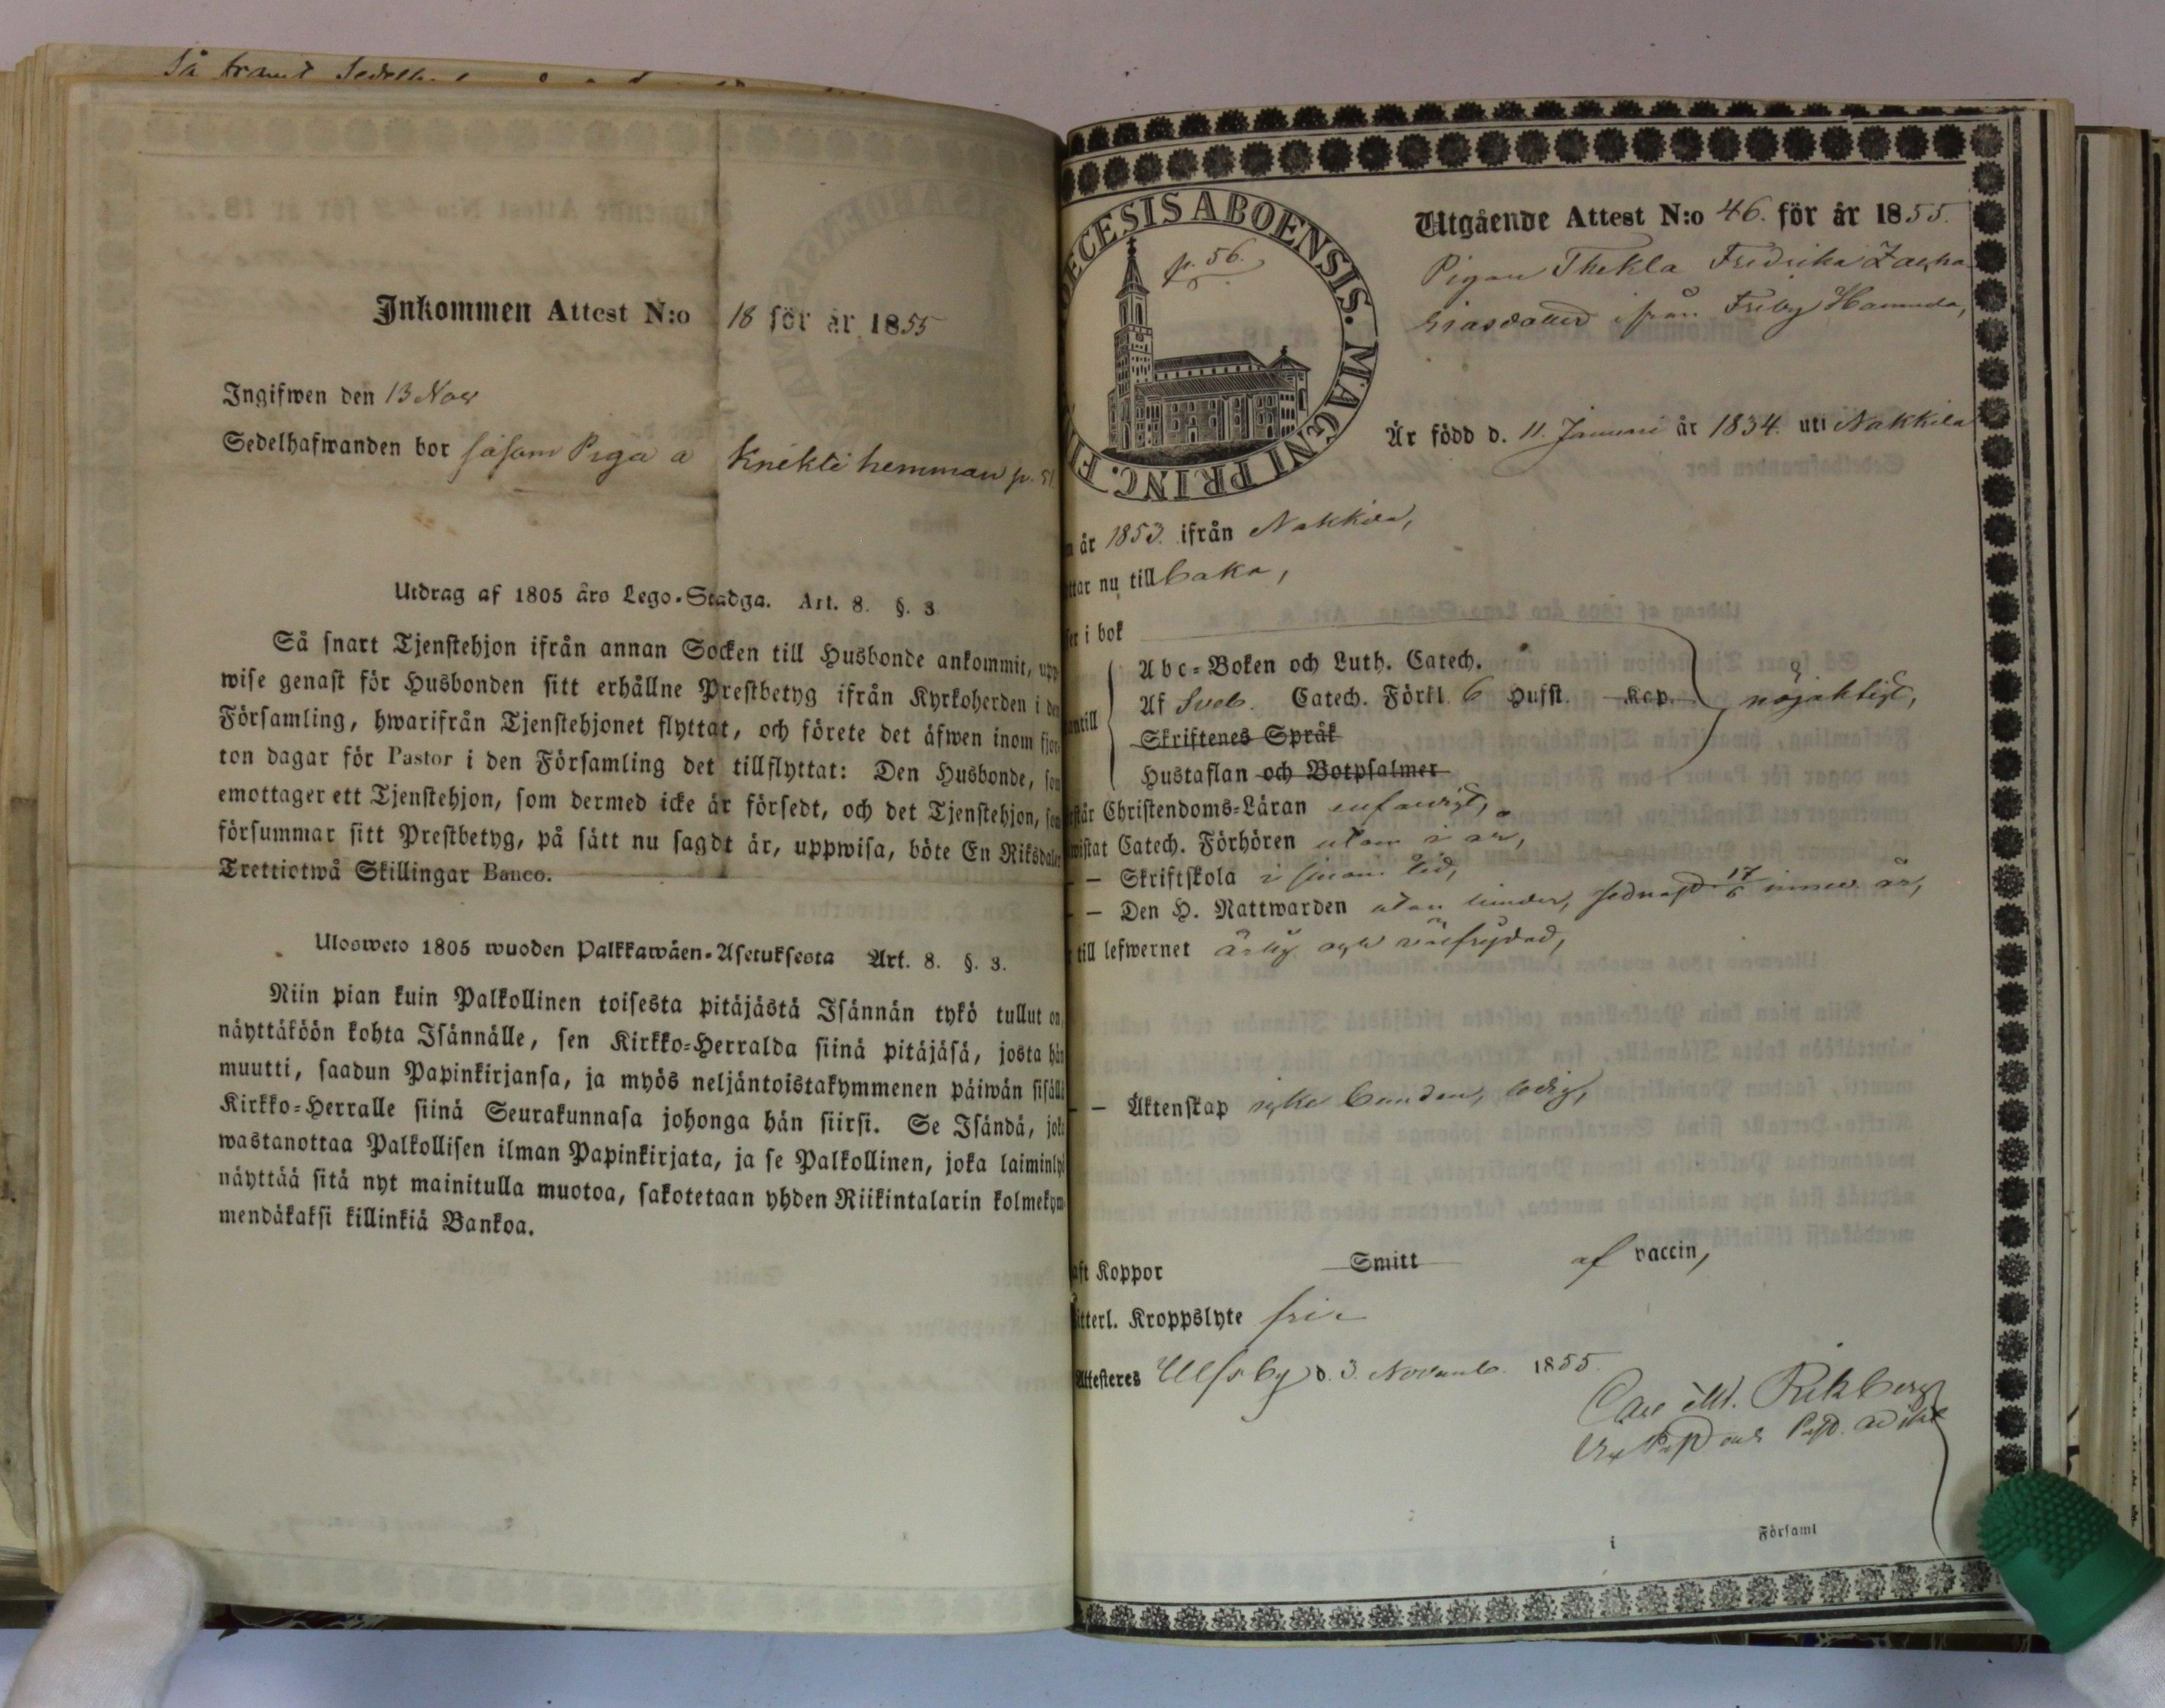 Så snart Sedelh
Inkommen Attest N:o 18 för år 1855
Ingifwen den 13 Nov
Sedelhafwanden bor såsom Piga å Knekti hemman p. 51
Utdrag af 1805 års Lego-Stadga. Art. 8. §. 3
Så snart Tjenstehjon ifrån annan Socken till Husbonde ankommit, upp
wise genast för Husbonden sitt erhållne Prestbetyg ifrån Kyrkoherden i den
Församling, hwarifrån Tjenstehjonet flyttat, och förete det äfwen inom fjor
ton dagar för Pastor i den Församling det tillflyttat: Den Husbonde, som
emottager ett Tjenstehjon, som dermed icke är försedt, och det Tjenstehjon, som
försummar sitt Prestbetyg, på sätt nu sagdt är, uppwisa, böte En Riksdaler
Trettiotwå Skillingar Banco.
Uloswето 1805 wuoden Palkkawäen-Asetuksesta Art. 8. §. 3.
Niin pian kuin Palkollinen toisesta pitäjästä Isännän tykö tullut on,
näyttäköön kohta Isännälle, sen Kirkko-Herralda siinä pitäjäsä, josta hän
muutti, saadun Papinkirjansa, ja myös neljäntoistakymmenen päiwän sisällä
Kirkko-Herralle siinä Seurakunnasa johonga hän siirsi. Se Isändä, joka
wastanottaa Palkollisen ilman Papinkirjata, ja se Palkollinen, joka laiminlyö
näyttää sitä nyt mainitulla muotoa, sakotetaan yhden Riikintalarin kolmekym
mendäkaksi killinkiä Bankoa.
ECESIS ABOENSIS. MAGNI PRINC. FI
p. 56.
Utgående Attest N:o 46. för år 1855.
Pigan Thekla Fredrika Zacha
riasdotter ifrån Friby Hannula,
Är född d. 11. Januari år 1834. uti Nakkila
år 1853. ifrån Nakkila,
ttar nu tillbaka,
ser i bok
Abc-Boken och Luth. Catech.
Af Sveb. Catech. Förkl. 6 Husst. Rop. nöjaktigt,
antill
Skriftenes Språk
Hustaflan och Botpsalmer
står Christendoms-Läran enfaldigt,
wistat Catech. Förhören utom i år,
— Skriftskola i sinom tid,
— Den H. Nattwarden utan hinder, sednast 17/6 innew. år,
till lefwernet ärlig och wälfrejdad,
— Äktenskap icke bunden, ledig,
aft Koppor Smitt af vaccin,
itterl. Kroppslyte fri
Attesteres Ulfsby d. 3. Novemb. 1855.
Carl M. Rikberg
i Församl